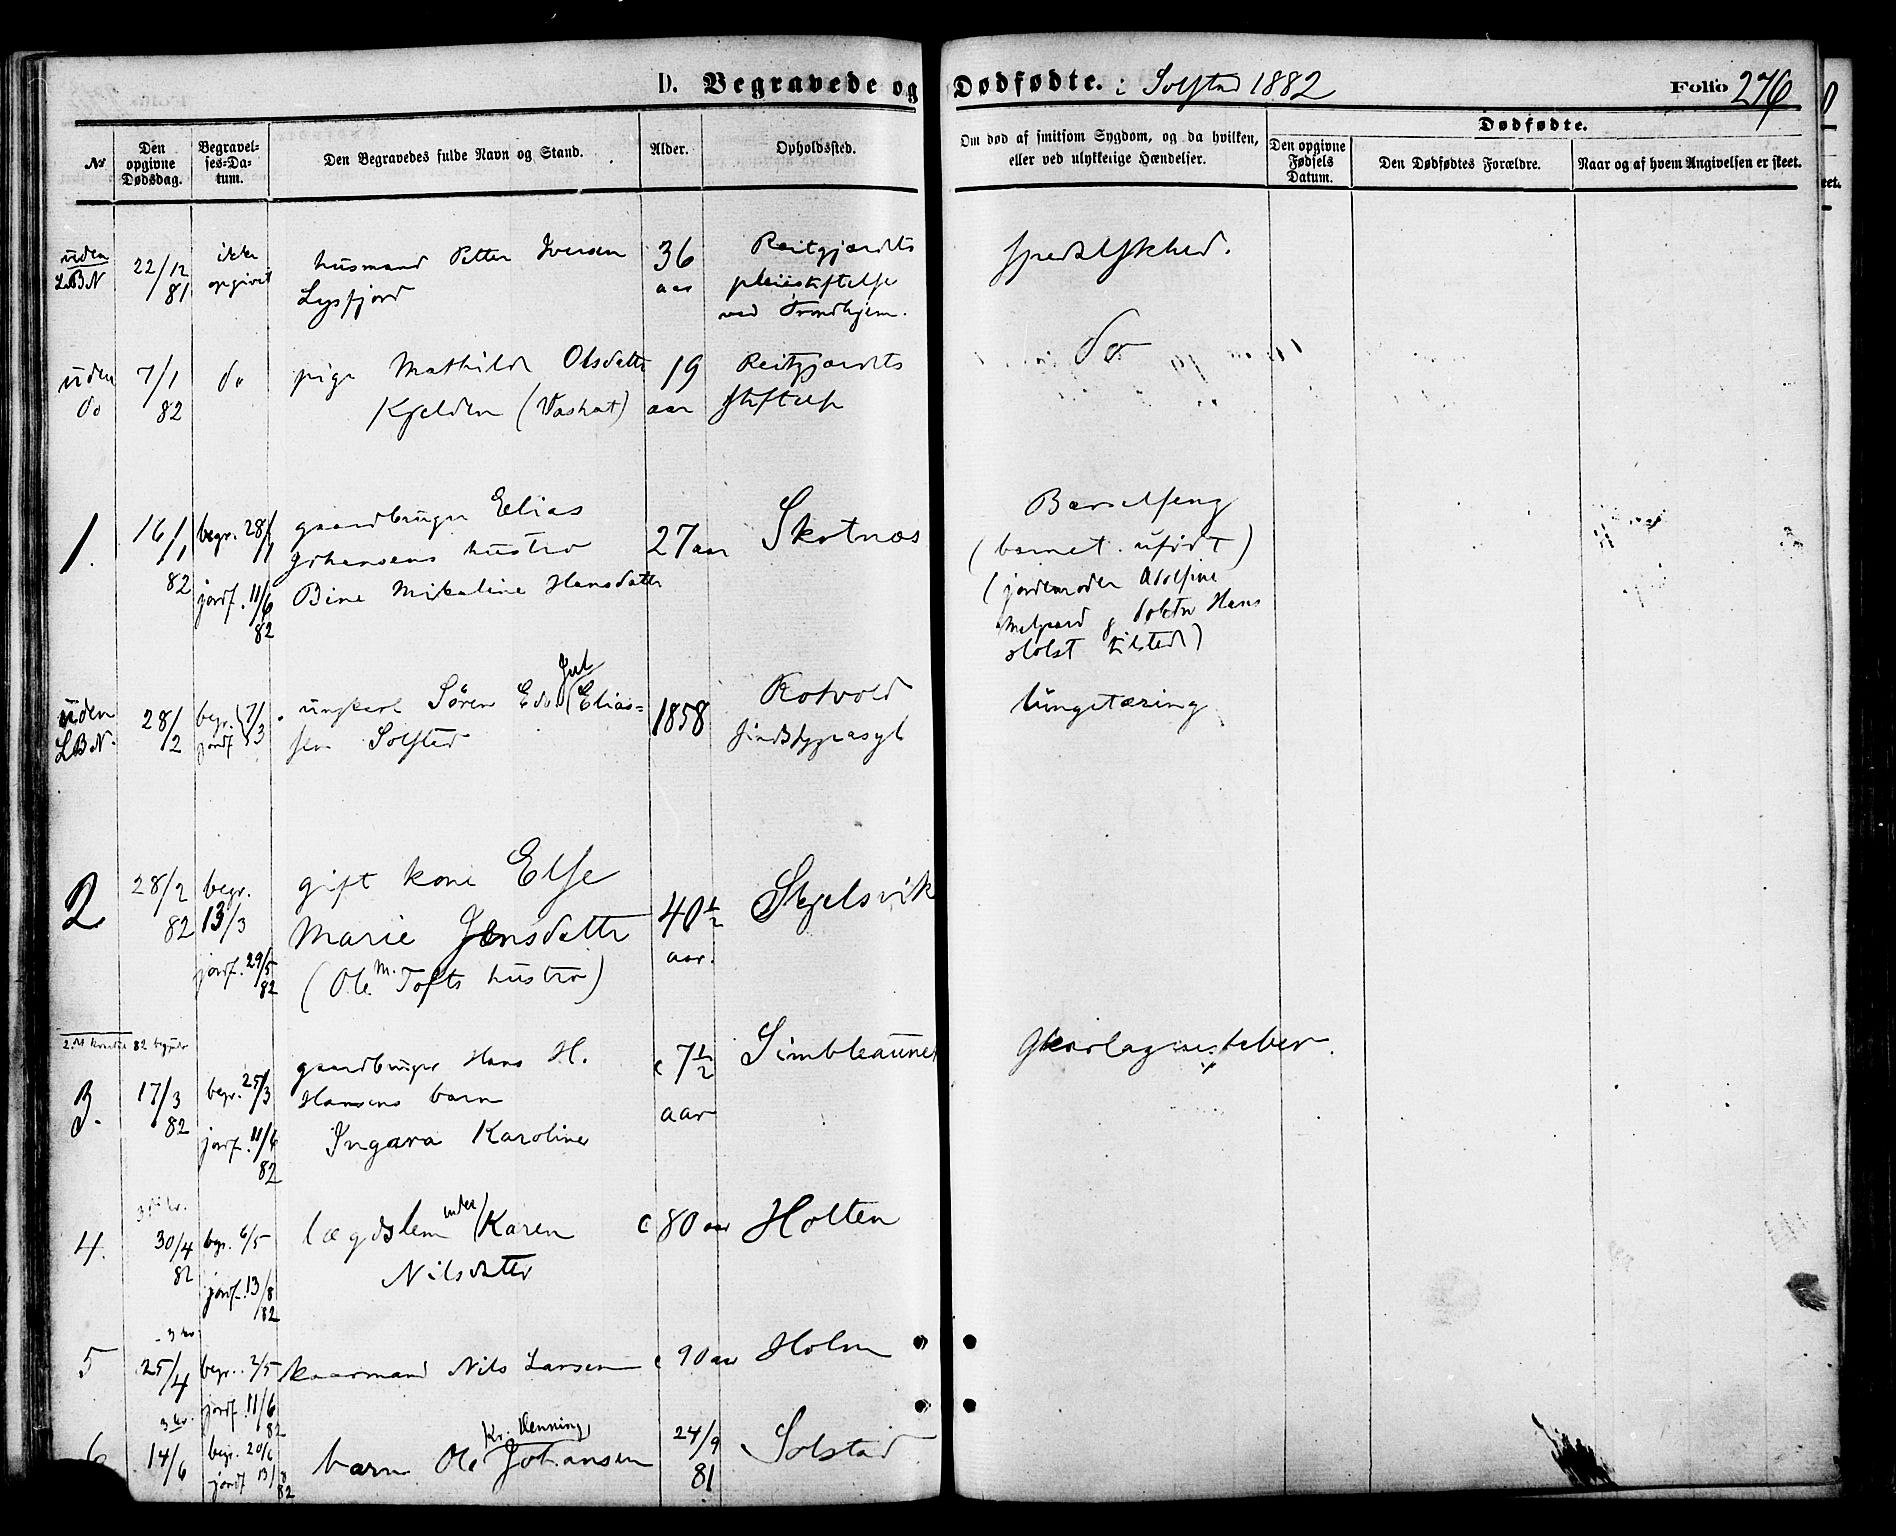 D. Begravede og Dødfødte. i Solstad 1882 Folio 276
No
Den opgivne Dødsdag.
Begravelses-Datum.
Den Begravedes fulde Navn og Stand.
Alder.
Opholdssted.
Om død af smitsom Sygdom, og da hvilken, eller ved ulykkelige Hændelser.
Dødfødte.
Den opgivne Fødsels Datum.
Den Dødfødtes Forældre.
Naar og af hvem Angivelsen er skeet.
uden 22/12 ikke husmand Petter Iversen 36 Reitgjærdets spedalskhed.
L.B.N 81 opgivet Lysfjord aar pleiestiftelse
ved Trondhjem.
uden 7/1 do pige Mathilde Olsdatter 19 Reitgjærdets do
do 82 Kjelden (Vaskat) aar stiftelse
1. 16/1 begr. 28/1 gaardbruger Elias 27 aar Skotnes Barselseng
82 jordf. 11/6 Johansens hustru (barnet ufødt)
82 Bine Mikaline Hansdatter (jordemoder Adolfine
& doktor Hans
Holst tilsted)
uden 28/2 begr. 7/3 ungkarl Søren Edv. Jul Elias= 1858 Rotvold lungetæring
L.B.N. jordf sen Solsted sindssygeasyl
2 28/2 begr. gift kone Else 40 1/2 Skjelsvik
82 13/3 Marie Jensdatter aar.
jordf. 29/5 82 (Ole M. Tofts hustru)
2. kvartal 82 begynder
3. 17/3 begr. 25/3 gaardbruger Hans H. c 7 1/2 Simbleaunet Skarlagensfeber.
82 jordf. 11/6 Hansens barn aar
82 Ingara Karoline
4. 30/4 begr. 6/5 lægdslem Karen c 80 aar Holten
82 jordf. 13/8 Nilsdatter
82
3 kr.
5 25/4 begr. 2/5 kaarmand Nils Larsen c 90 aar Holm
jordf. 11/6 82
3 kr.
6 14/6 begr. 20/6 barn Ole Kr. Henning Johansen 24/9 Solstad
jordf 13/8 82 81